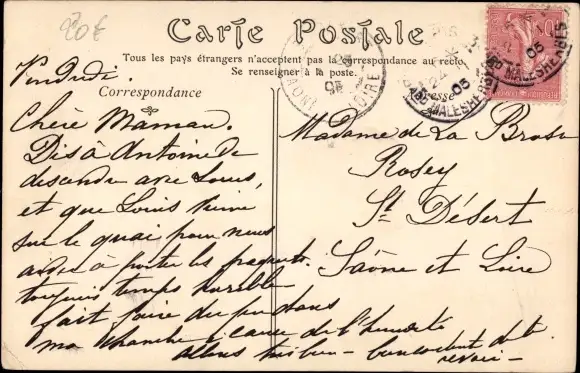 20€
Carte Postale
Tous les pays étrangers n'acceptent pas la correspondance au recto.
Se renseigner à la poste.
Correspondance
Vendredi.
Chère Maman.
Dis à Antoine de
descendre avec Louis,
et que Louis vienne
sur le quai pour nous
aider à porter les paquets.
toujours temps horrible
fait faire du feu dans
ma chambre à cause de l'humidité
allons très bien - bien contente de te
revoir -
Madame de La Brosse
Rosey
St Désert
Saône et Loire
05
LOIRE
05
MALESHERBES
05
MALESHERBES